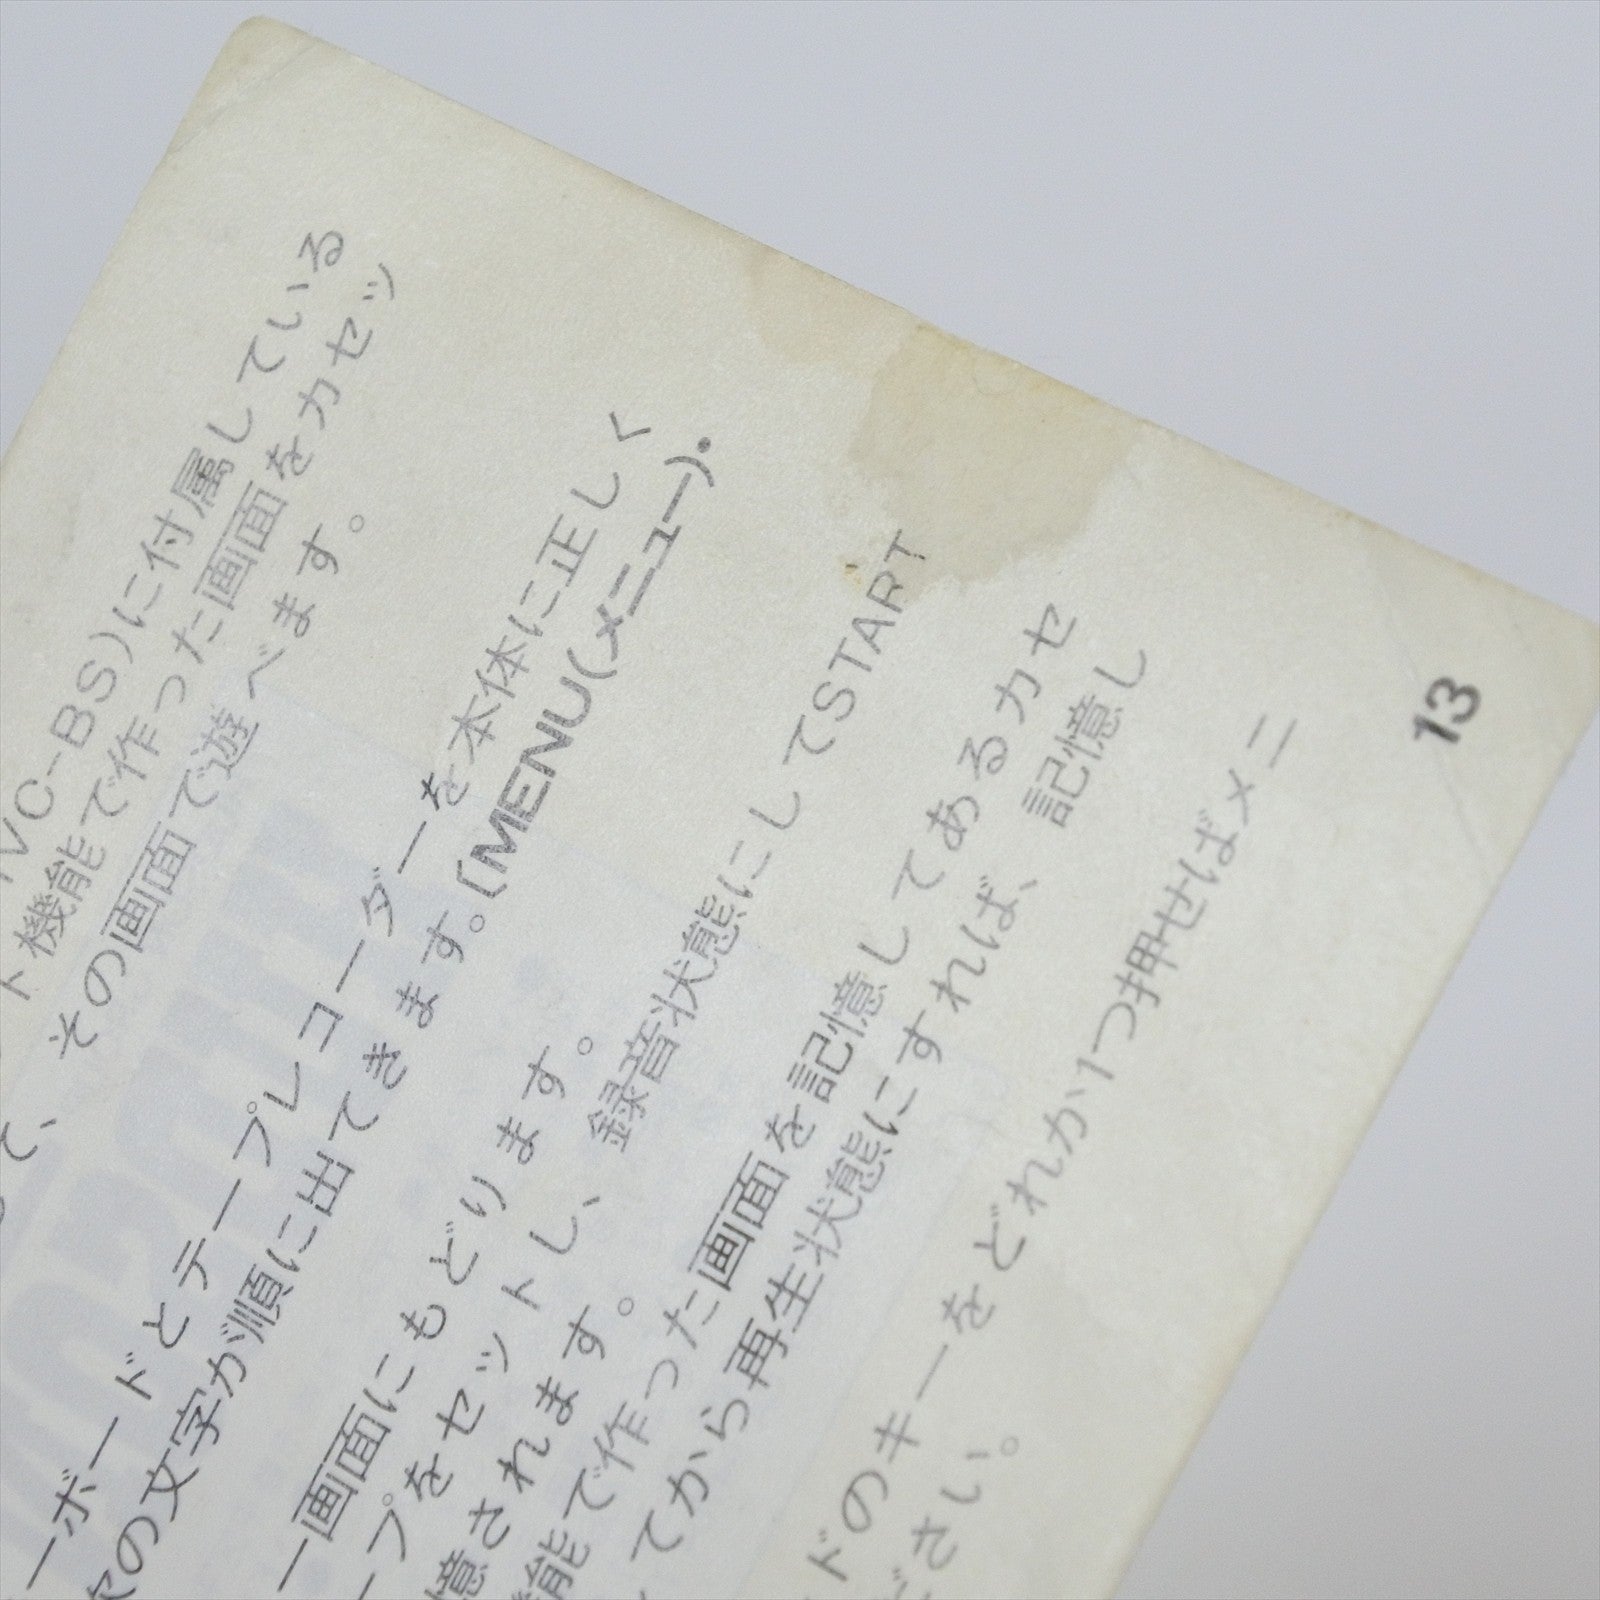 VC-BS)に付属している
ト機能で作った画面をカセッ
て、その画面で遊べます。
ーボードとテープレコーダーを本体に正しく
次の文字が順に出てきます。〔MENU(メニュー)・
ー画面にもどります。
ープをセットし、録音状態にしてSTART
憶されます。
機能で作った画面を記憶してあるカセ
てから再生状態にすれば、記憶し
ドのキーをどれか1つ押せばメニ
ださい。
13